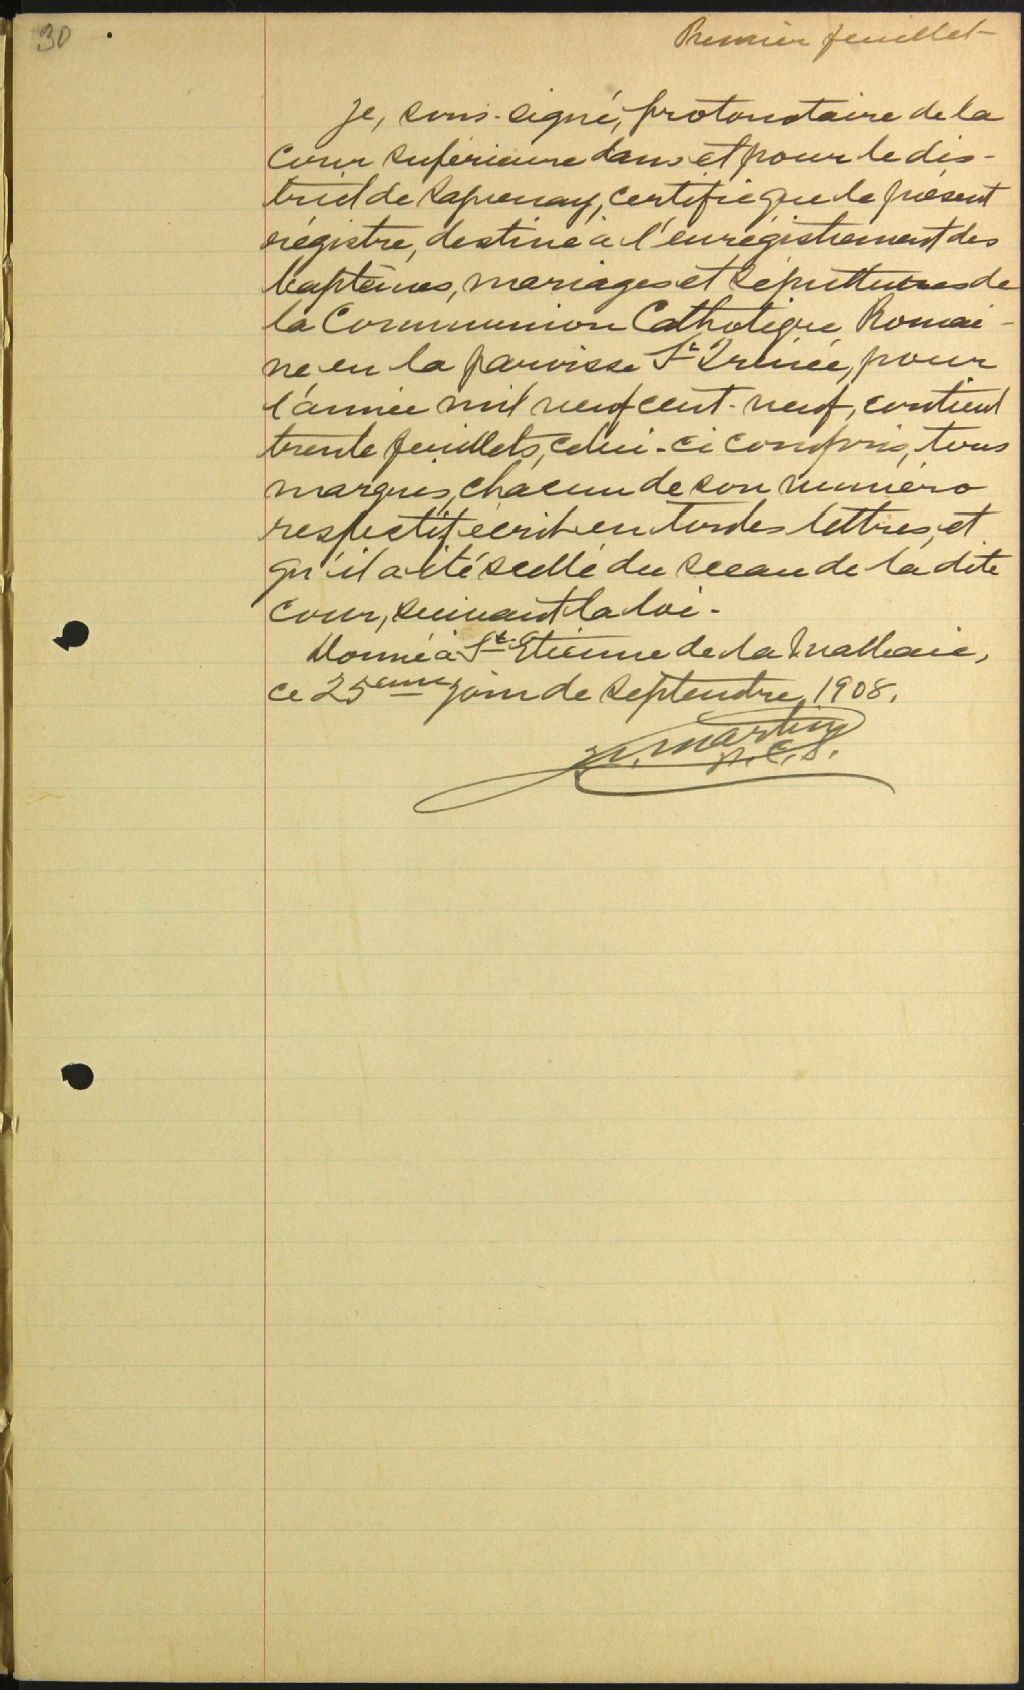 30
Premier feuillet
Je, sous-signé, protonotaire de la
Cour Supérieure dans et pour le dis-
trict de Saguenay, certifie que le présent
régistre, destiné à l'enrégistrement des
baptêmes, mariages et sépultures de
la Communion Catholique Romai-
ne en la paroisse St Irénée, pour
l'année mil neuf cent-neuf, contient
trente feuillets, celui-ci compris, tous
marqués, chacun de son numéro
respectif écrit en toutes lettres, et
qu'il a été scellé du sceau de la dite
Cour, suivant la loi.
Donné à St-Etienne de la Malbaie,
ce 25eme jour de Septembre, 1908.
Martin
P.C.S.